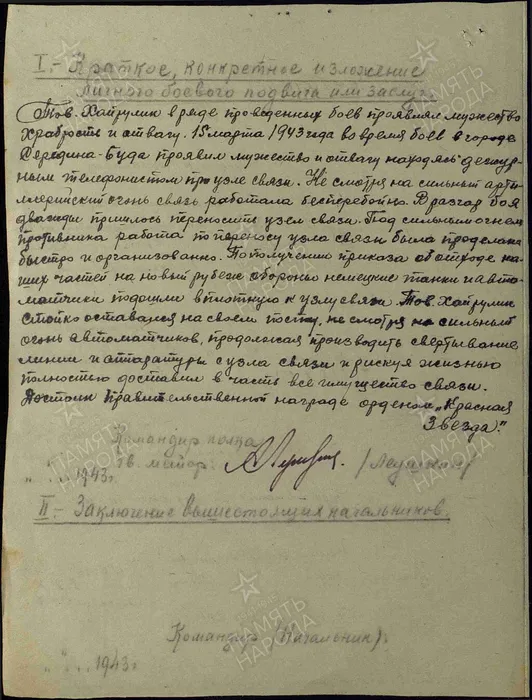 I.- Краткое, конкретное изложение
личного боевого подвига или заслуг.
Тов. Хайрулин в ряде проведенных боев проявлял мужество
храбрость и отвагу. 15 марта 1943 года во время боев в городе
Середина-Буда проявил мужество и отвагу находясь дежур-
ным телефонистом при узле связи. Не смотря на сильный арти-
ллерийский огонь связь работала бесперебойно. В разгар боя
дважды пришлось переносить узел связи. Под сильным огнем
противника работа по переносу узла связи была проделана
быстро и организованно. По получении приказа об отходе на-
ших частей на новый рубеж обороны немецкие танки и авто-
матчики подошли вплотную к узлу связи. Тов. Хайрулин
стойко оставался на своем посту, не смотря на сильный
огонь автоматчиков, продолжая производить свертывание
линии и аппаратуры с узла связи и рискуя жизнью
полностью доставил в часть все имущество связи.
Достоин правительственной награды орденом „Красная
Звезда."
Командир полка
гв. майор
" " 1943 г.
II.- Заключение вышестоящих начальников.
Командир (Начальник)
" " 1943 г.
ПАМЯТЬ НАРОДА